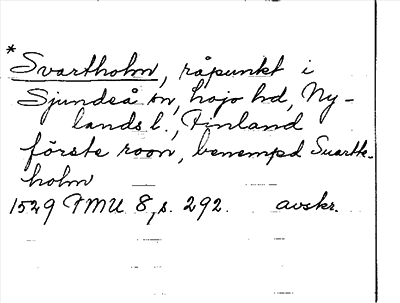 * Svartholm, råpunkt i
Sjundeå sn, Lojo hd, Ny-
lands l., Finland
förste roon, benempd Suartk-
holm
1529 FMU 8, s. 292. avskr.